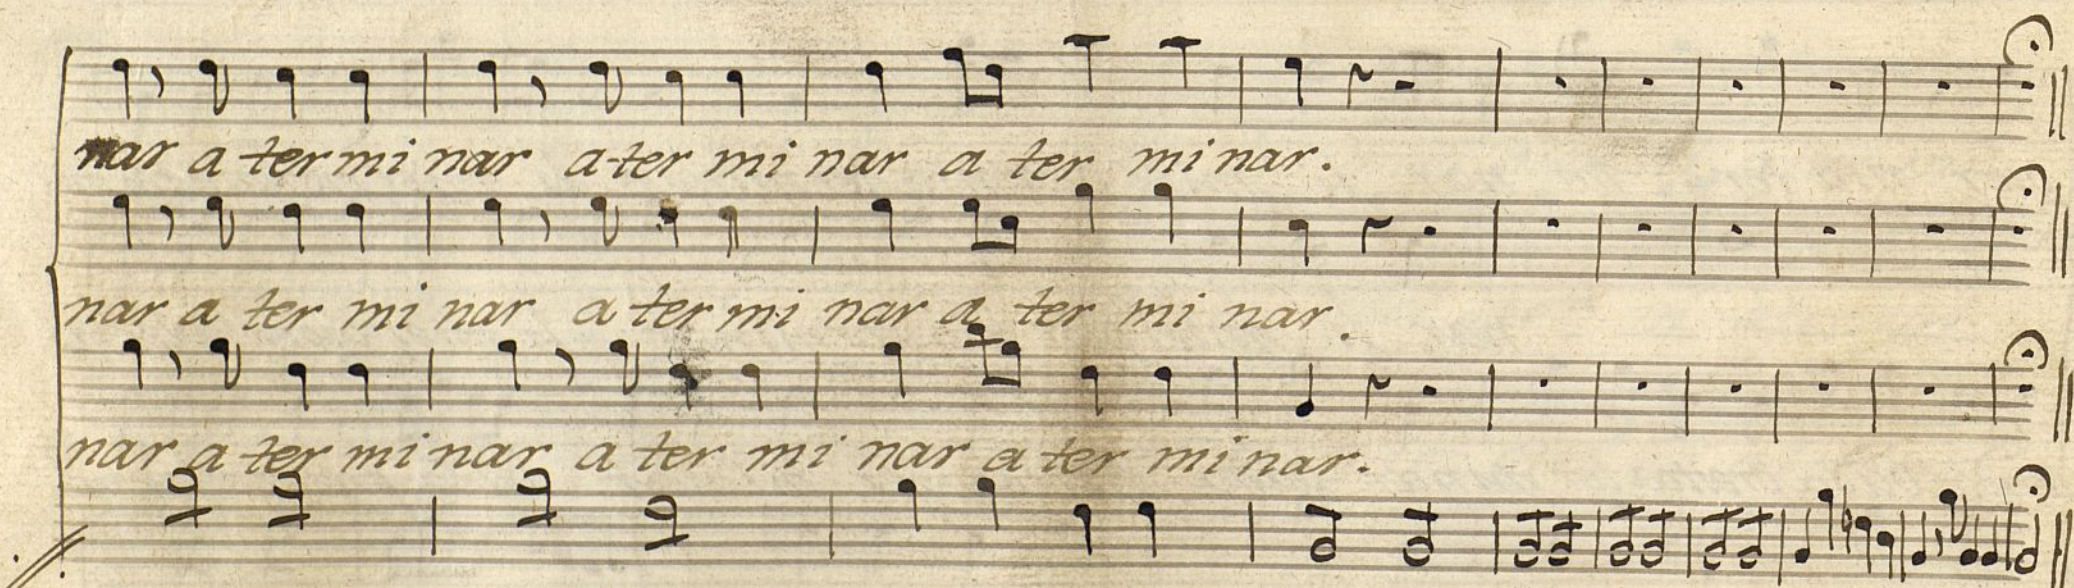 nar a ter mi nar a ter mi nar a ter mi nar.
nar a ter mi nar a ter mi nar a ter mi nar.
nar a ter mi nar a ter mi nar a ter mi nar.